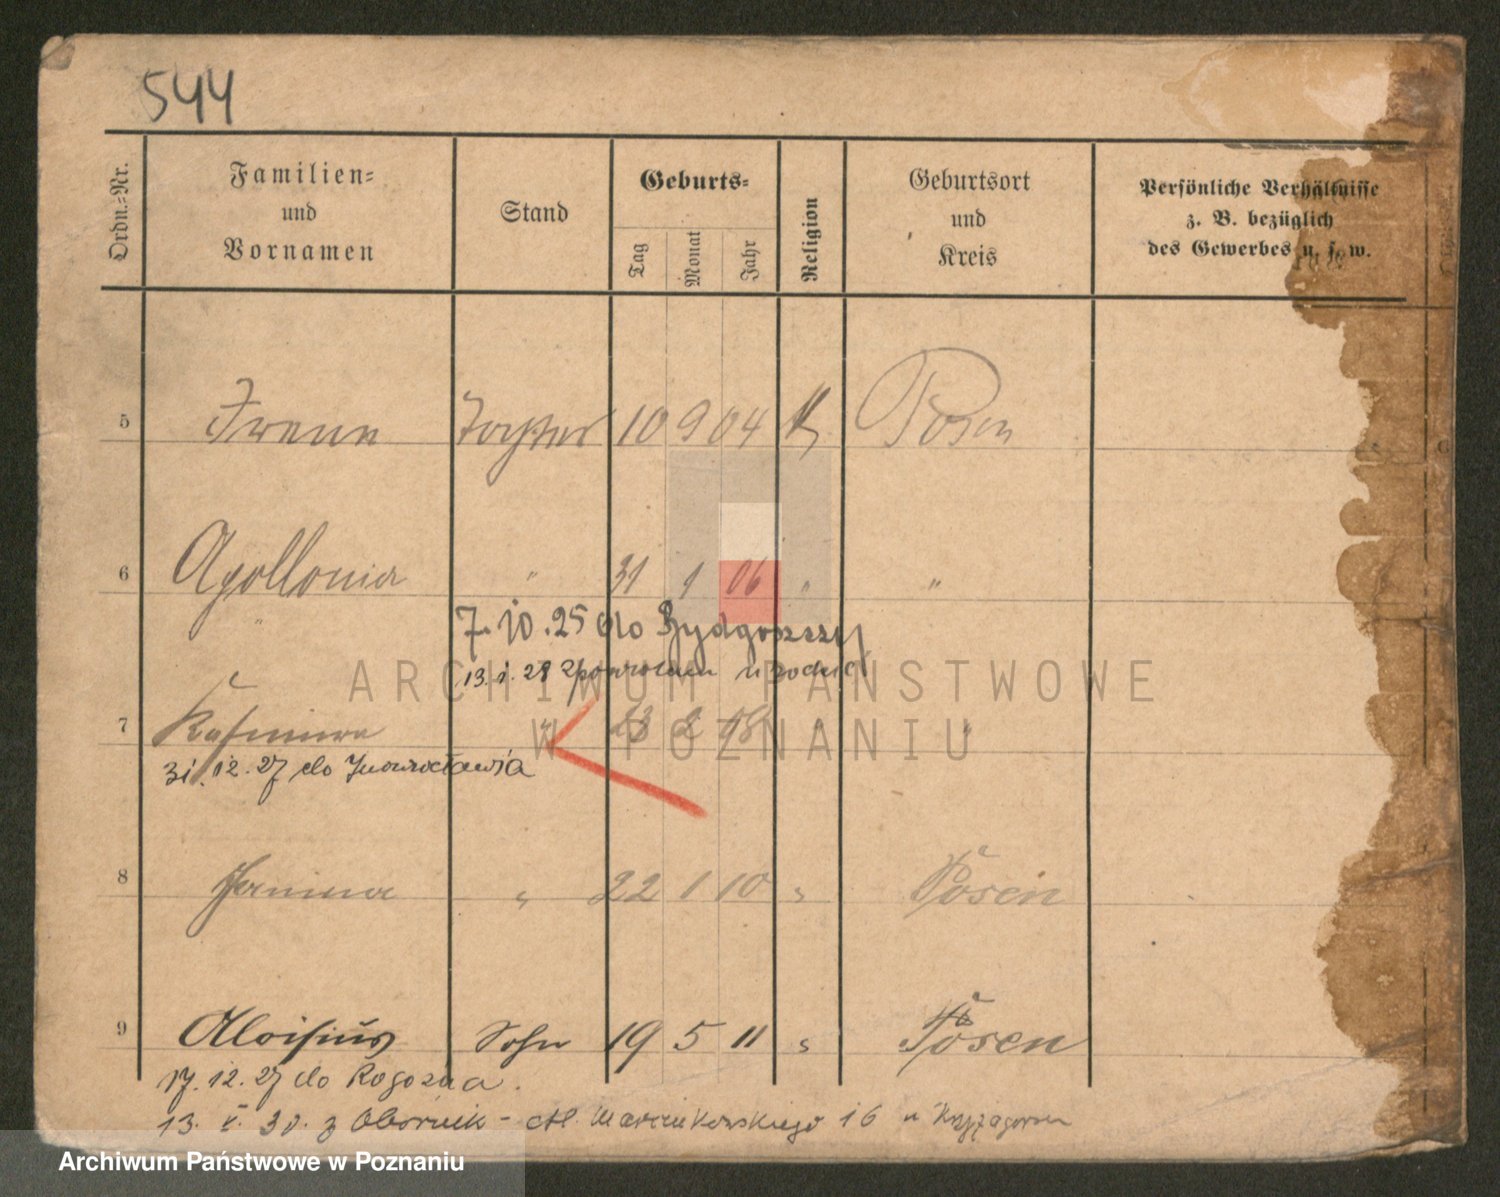 544
Ordn.=Nr.
Familien=
und
Vornamen
Stand
Geburts=
Tag
Monat
Jahr
Religion
Geburtsort
und
Kreis
Persönliche Verhältnisse
z. B. bezüglich
des Gewerbes u. s. w.
5 Irene Tochter 10 9 04 K Posen
6 Apollonia " 31 1 06 " "
7.10.25 do Bydgoszczy
13.1.28 z powrotem
7 Kasimira " 23 2 08 "
31.12.27 do Inowrocławia
8 Janina " 22 1 10 " Posen
9 Aloisius Sohn 19 5 11 " Posen
17.12.27 do Rogoźna.
13. V. 30. z Obornik - Al. Marcinkowskiego 16 u
ARCHIWUM PAŃSTWOWE
W POZNANIU
Archiwum Państwowe w Poznaniu